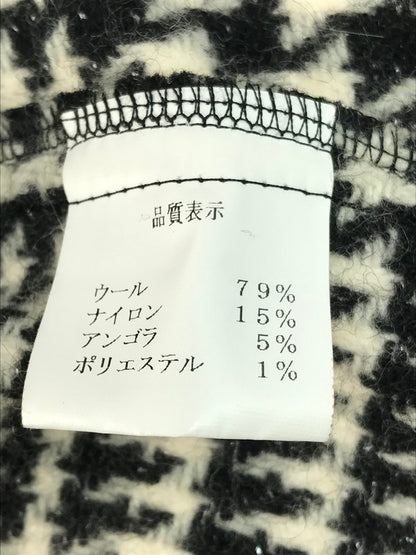 品質表示
ウール 79%
ナイロン 15%
アンゴラ 5%
ポリエステル 1%